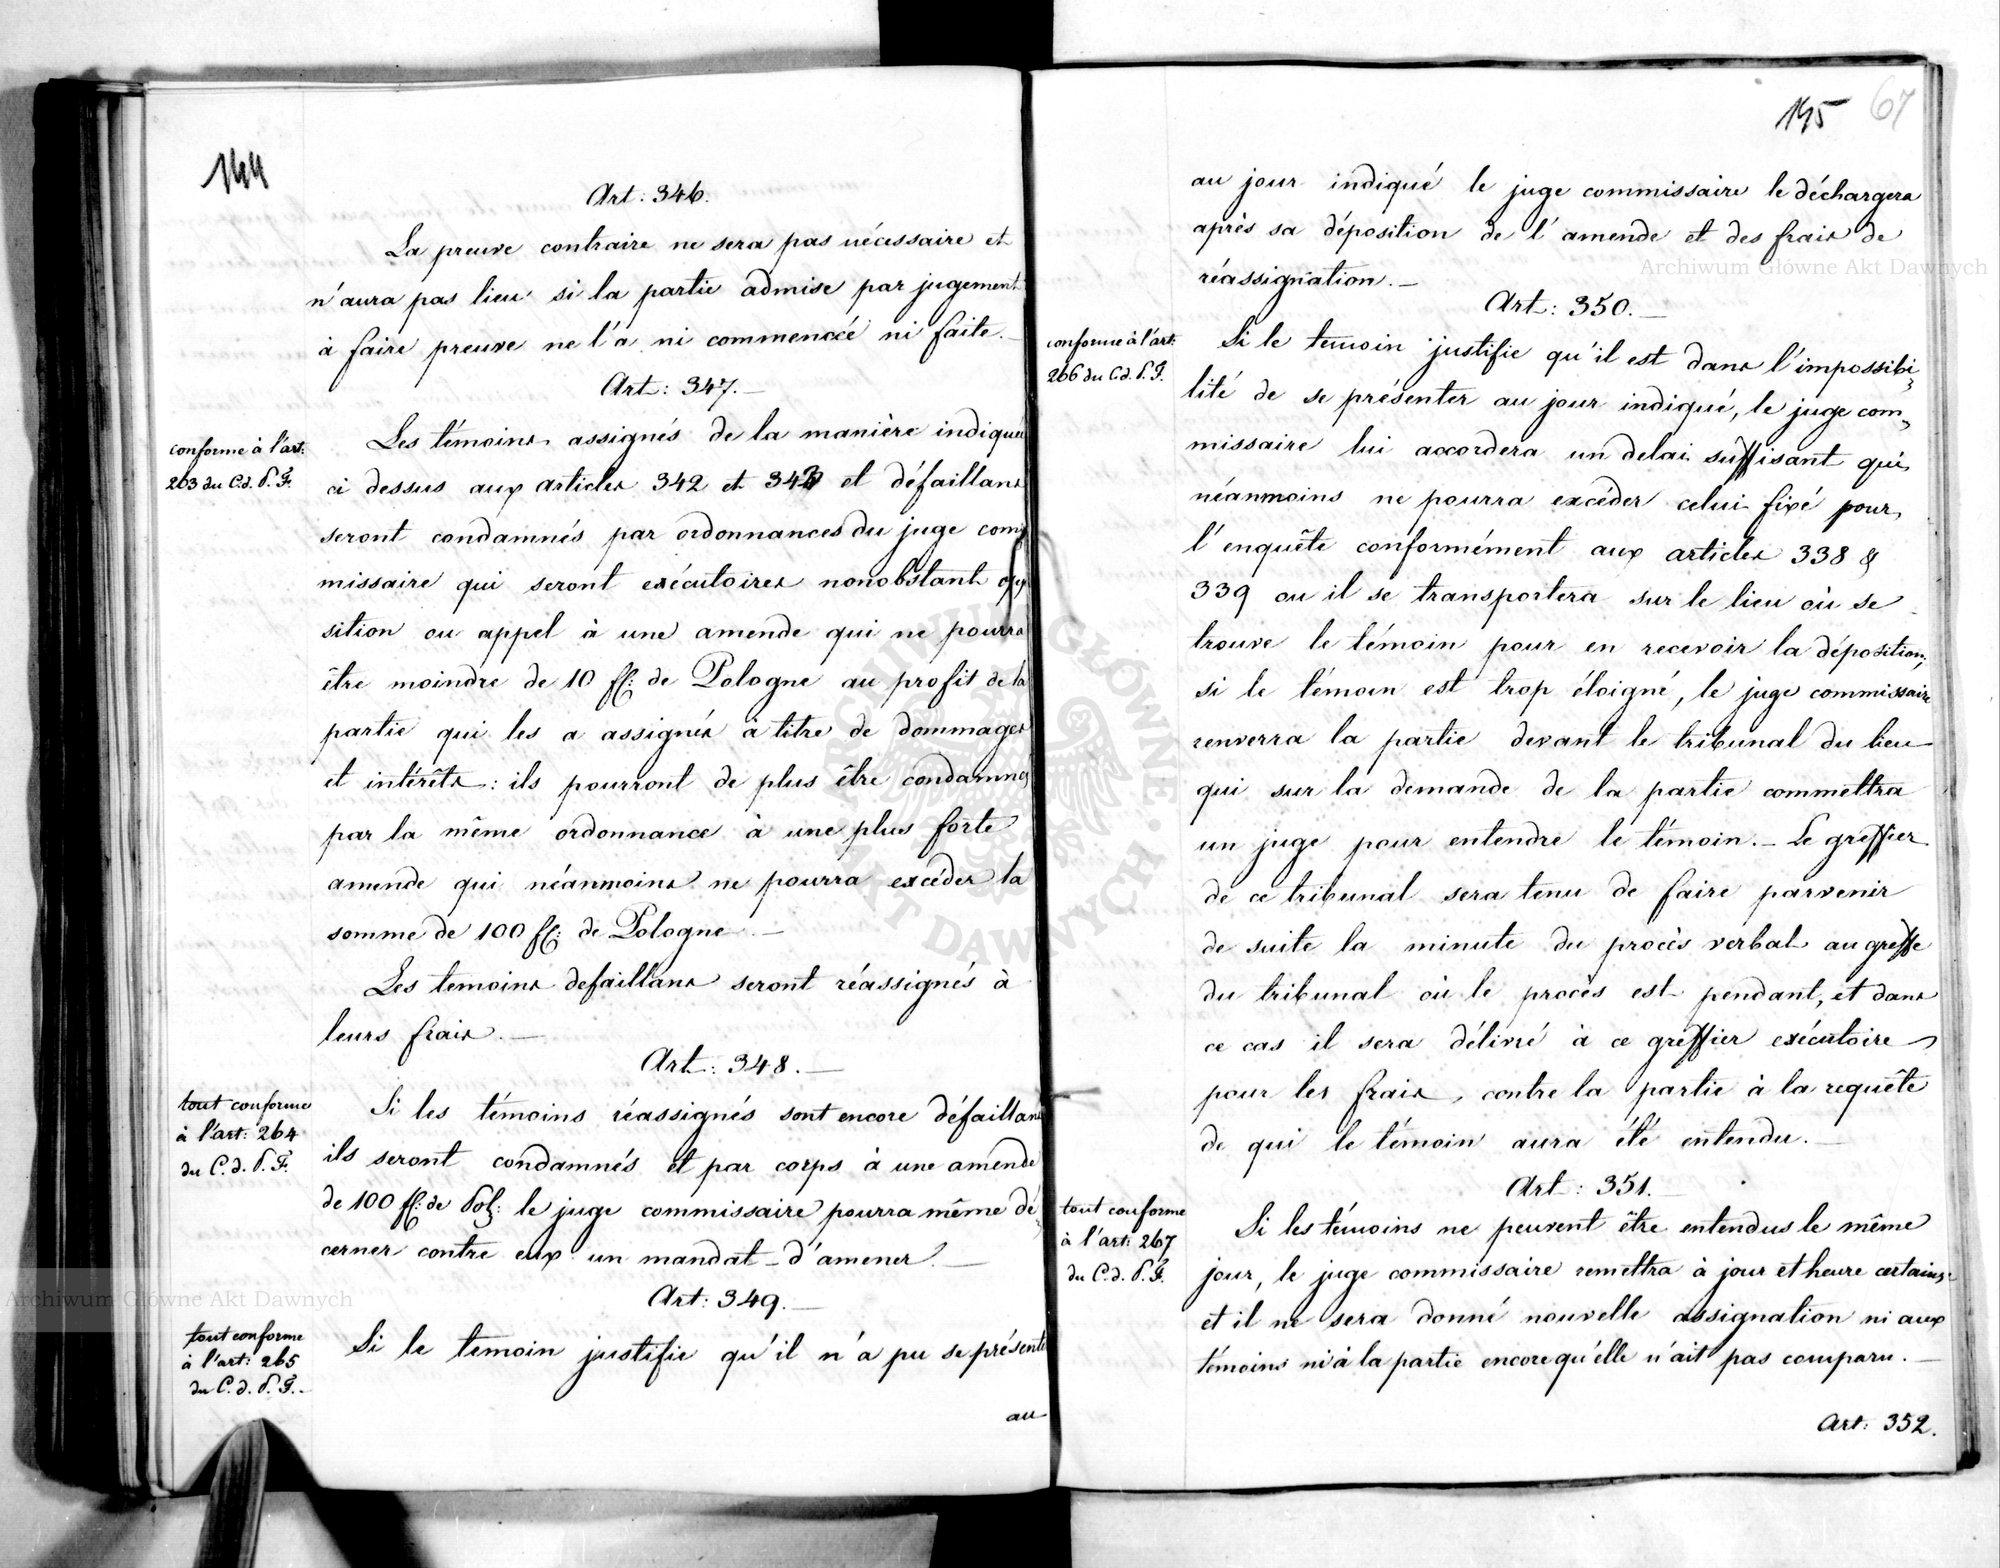 144
Art: 346.
La preuve contraire ne sera pas nécessaire et
n'aura pas lieu si la partie admise par jugement
à faire preuve ne l'a ni commencée ni faite. –
Art: 347. –
conforme à l'art:
263 du C.d. P. F.
Les témoins assignés de la manière indiquée
ci dessus aux articles 342 et 343 et défaillans
seront condamnés par ordonnances du juge com
missaire qui seront exécutoires nonobstant oppo
sition ou appel à une amende qui ne pourra
être moindre de 10 fl: de Pologne au profit de la
partie qui les a assignés à titre de dommages
et intérêts: ils pourront de plus être condamnés
par la même ordonnance à une plus forte
amende qui néanmoins ne pourra excéder la
somme de 100 fl: de Pologne. –
Les temoins defaillans seront réassignés à
leurs frais. –
Art: 348. –
tout conforme
à l'art: 264
du C. d. P. F.
Si les témoins réassignés sont encore défaillans
ils seront condamnés et par corps à une amende
de 100 fl: de Pol: le juge commissaire pourra même dé„
cerner contre eux un mandat d'amener. –
Art: 349. –
tout conforme
à l'art: 265
du C. d. P. F. –
Si le temoin justifie qu'il n'a pu se présenter
au
145 67
au jour indiqué le juge commissaire le déchargera
après sa déposition de l'amende et des frais de
réassignation. –
Art: 350. –
conforme à l'art:
266 du C.d. P. F.
Si le temoin justifie qu'il est dans l'impossibi„
lité de se présenter au jour indiqué, le juge com„
missaire lui accordera un delai suffisant qui
néanmoins ne pourra excéder celui fixé pour
l'enquête conformément aux articles 338 &
339 ou il se transportera sur le lieu où se
trouve le témoin pour en recevoir la déposition;
si le témoin est trop éloigné, le juge commissaire
renverra la partie devant le tribunal du lieu
qui sur la demande de la partie commettra
un juge pour entendre le témoin. – Le greffier
de ce tribunal sera tenu de faire parvenir
de suite la minute du procès verbal au greffe
du tribunal où le procès est pendant, et dans
ce cas il sera délivré à ce greffier exécutoire
pour les frais, contre la partie à la requête
de qui le témoin aura été entendu. –
Art: 351. –
tout conforme
à l'art: 267
du C.d. P. F.
Si les témoins ne peuvent être entendus le même
jour, le juge commissaire remettra à jour et heure certains
et il ne sera donné nouvelle assignation ni aux
témoins ni à la partie encore qu'elle n'ait pas comparu. –
Art: 352.
Archiwum Główne Akt Dawnych
Archiwum Główne Akt Dawnych
ARCHIWUM GŁÓWNE AKT DAWNYCH